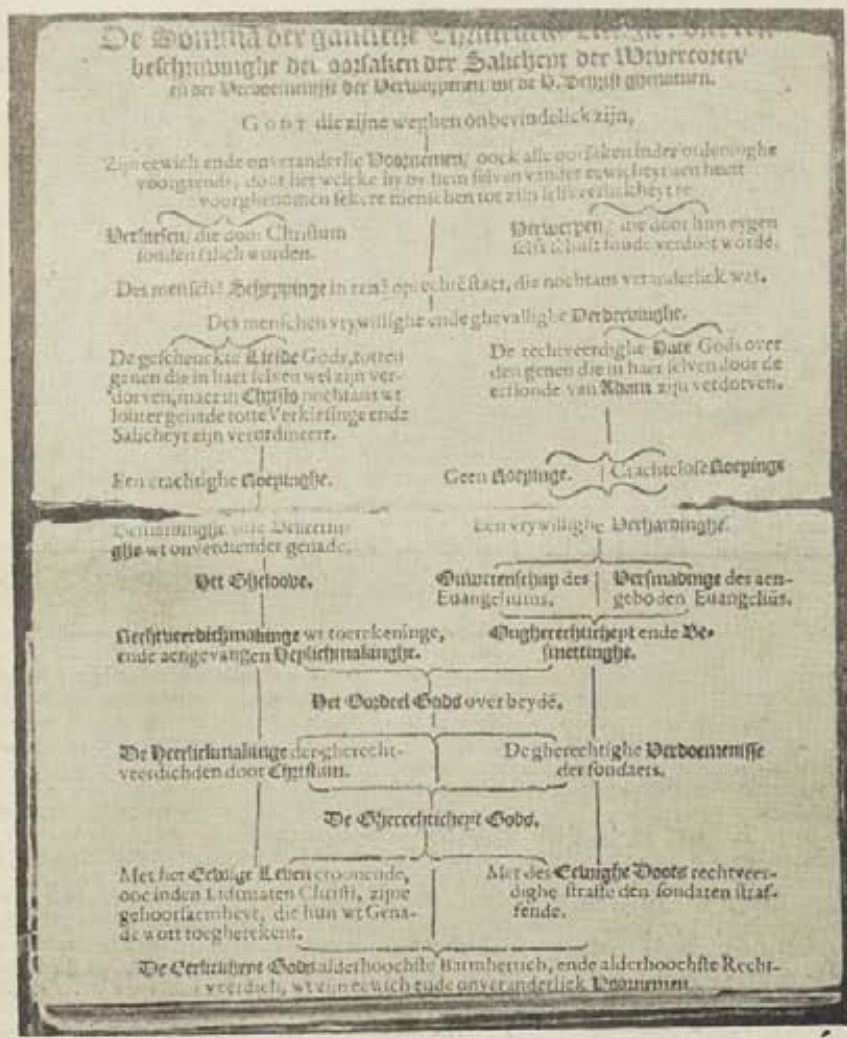 De Somma der
beschrivinghe der oorsaken der Salicheyt der
en der Verdoemenisse der Verworpenen wt de H. Schrift ghenomen.
GODT die zijne weghen onbevindelick zijn,
Zijn eewich ende onveranderlic Voornemen, oock alle oorsaken inder ordeninghe
voorgaende, door het welcke hy by hem selven vander eewicheyt aen heeft
voorghenomen sekere menschen tot zijn selfs verlickheyt te
Verkiesen, die door Christum
souden salich worden.
Verwerpen, die door hun eygen
schult soude verdoet wordē.
Des menschē Scheppinge in eenē oprechtē staet, die nochtans veranderlick was.
Des menschen vrywillighe ende ghevallighe Verdervinghe.
De geschenckte Liefde Gods, totten
genen die in haer selven wel zijn ver-
dorven, maer in Christo nochtans wt
louter genade totte Verkiesinge ende
Salicheyt zijn verordineert.
De rechtveerdighe Hate Gods over
den genen die in haer selven door de
erfsonde van Adam zijn verdorven.
Een crachtighe Roepinghe.
Geen Roepinge. Crachtelose Roepinge
ghe wt onverdiender genade.
Een vrywillighe Verhardinghe.
Het Gheloove.
Onwetenschap des
Euangeliums.
Versmadinge des aen-
geboden Euangeliūs.
Rechtveerdichmakinge wt toerekeninge,
ende aengevangen Heylichmakinghe.
Ongherechticheyt ende Be-
smettinghe.
Het Oordeel Gods over beydē.
De Heerlickmakinge der gherecht-
veerdichden door Christum.
De gherechtighe Verdoemenisse
der sondaers.
De Gherechticheyt Gods.
Met het Eewige Leven croonende,
ooc inden Lidtmaten Christi, zijne
gehoorsaemheyt, die hun wt Gena-
de wort toegherekent.
Met des Eewighe Doots rechtveer-
dighe straffe den sondaren straf-
fende.
De Eerlicheyt Gods alderhoochste Barmhertich, ende alderhoochste Recht-
veerdich, wt zijn eewich ende onveranderlick Voornemen.